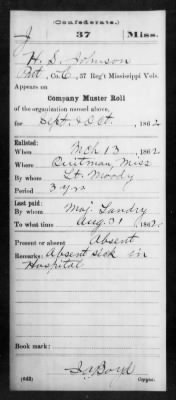 (Confederate.)
J 37 Miss.
H. S. Johnson
Pvt, Co. C, 37 Reg't Mississippi Vols.
Appears on
Company Muster Roll
of the organization named above,
for Sept. & Oct., 1862
Enlisted:
When Mch 13, 1862
Where Quitman, Miss
By whom Lt. Moody
Period 3 yrs
Last paid:
By whom Maj. Landry
To what time Aug. 31, 1862
Present or absent Absent
Remarks: Absent sick in
Hospital
Book mark:
(642) Copyist.